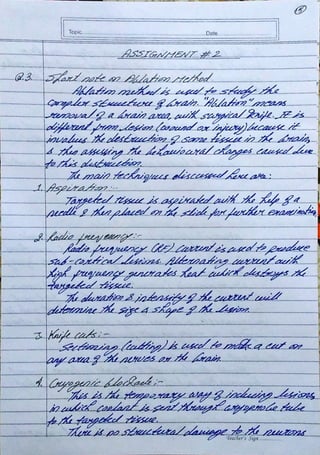 5
Topic
Date
ASSIGNMENT # 2
Q.3. Short note on Ablation Method
Ablation method is used to study the
complex structure of brain. "Ablation" means
removal of a brain area with surgical knife. It is
different from lesion (wound or injury) because it
involves the destruction of some tissues in the brain,
& then assessing the behavioural changes caused due
to this destruction.
The main techniques discussed here are:
1. Aspiration:-
Targeted tissue is aspirated with the help of a
needle & then placed on the slide for further examination
2. Radio frequency:-
Radio frequency (RF) current is used to produce
sub-cortical lesions. Alternating current with
high frequency generates heat which destroys the
targeted tissue.
The duration & intensity of the current will
determine the size & shape of the lesion.
3. Knife cuts:-
Sectioning (cutting) is used to make a cut on
any area of the nerves or the brain.
4. Cryogenic blockade:-
This is the temporary way of inducing lesions
in which coolant is sent through cryoprobe tube
to the targeted tissue.
There is no structural damage to the neurons
Teacher's Sign